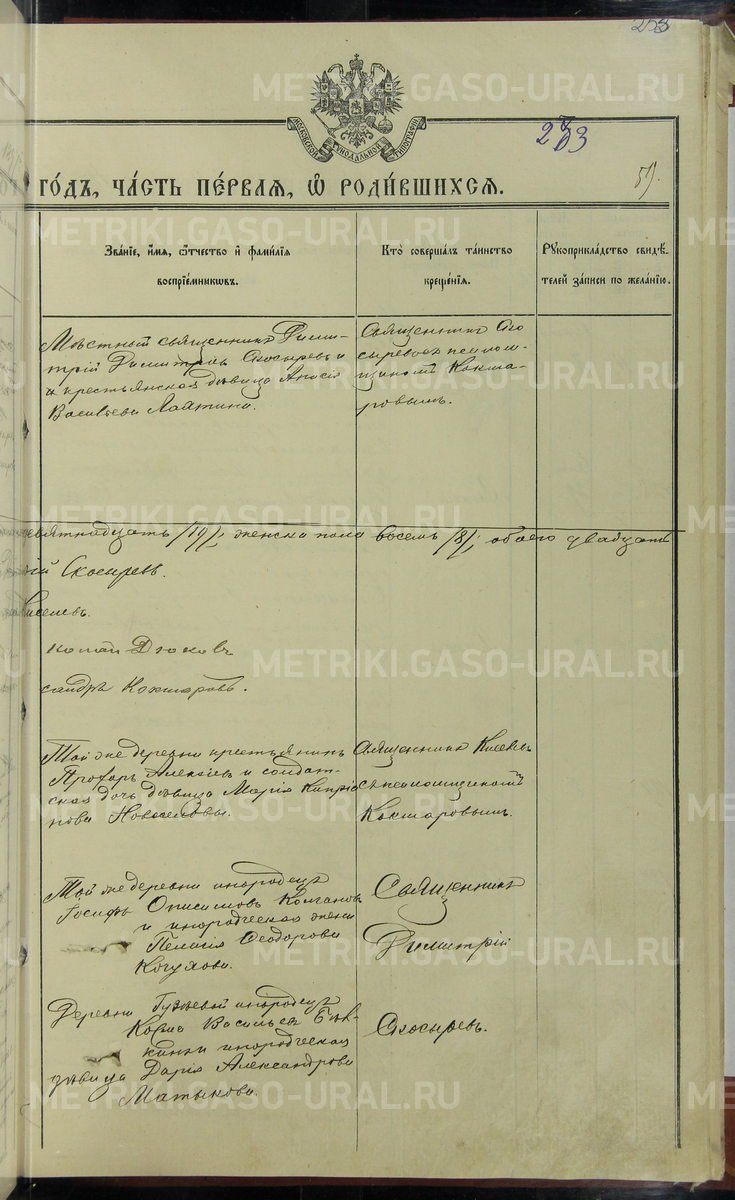 253
253
МОСКОВСКОЙ СѴНОДАЛЬНОЙ ТИПОГРАФІИ
57.
ГО́ДЪ, ЧА́СТЬ ПЕ́РВАЯ, Ѡ҆ РОДИ́ВШИХСЯ.
Зва́нїе, и҆́мя, ѻ҆́тчество и҆ фами́лїя
воспрїе́мникѡвъ.
Кто̀ соверша́лъ та́инство
креще́нїя.
Рꙋкоприкла́дство свидѣ́-
телей за́писи по жела́нїю.
Мѣстный священникъ Дими-
трій Димитріевъ Скосыревъ и
и крестьянская дѣвица Анисія
Васильева Лаптина.
Священникъ Ско
сыревъ съ псаломщ-
щикомъ Кокша-
ровымъ.
девятнадцать /19/, женска пола восемь /8/; обоего двадцать
Скосыревъ.
Киселевъ.
Дюковъ
сандръ Кокшаровъ.
Той же деревни крестьянинъ
Прохоръ Алексіевъ и солдат-
ская дочь дѣвица Марія Кипріа
нова Новоселова.
Священникъ Киселевъ
съ псаломщикомъ
Кокшаровымъ.
Той же деревни инородецъ
Іосифъ Онисимовъ Колчановъ
и инородческая жена
Пелагія Ѳеодорова
Когухова.
Священникъ
Димитрій
Скосыревъ.
Деревни инородецъ
Косма Васильевъ
инородческая
дѣвица Дарія Александрова
Матыкова.
METRIKI.GASO-URAL.RU